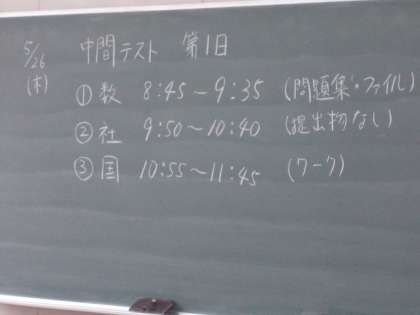 5/26 中間テスト 第1日
(木) ①数 8:45～9:35 (問題集・ファイル)
②社 9:50～10:40 (提出物なし)
③国 10:55～11:45 (ワーク)